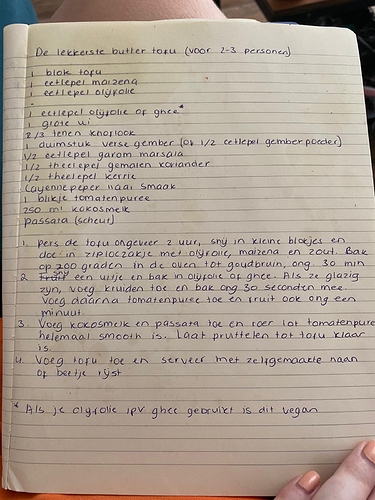 De lekkerste butter tofu (voor 2-3 personen)
1 blok tofu
1 eetlepel maizena
1 eetlepel olijfolie
-
1 eetlepel olijfolie of ghee*
1 grote ui
2/3 tenen knoflook
1 duimstuk verse gember (of 1/2 eetlepel gemberpoeder)
1/2 eetlepel garom marsala
1/2 theelepel gemalen koriander
1/2 theelepel kerrie
Cayennepeper naar smaak
1 blikje tomatenpuree
250 ml kokosmelk
passata (scheut)
1. Pers de tofu ongeveer 2 uur, snij in kleine blokjes en
doe in ziploczakje met olijfolie, maizena en zout. Bak
op 200 graden in de oven tot goudbruin, ong. 30 min
2. snij een uitje en bak in olijfolie of ghee. Als ze glazig
zijn, voeg kruiden toe en bak ong 30 seconden mee.
Voeg daarna tomatenpuree toe en fruit ook ong een
minuut.
3. Voeg kokosmelk en passata toe en roer tot tomatenpuree
helemaal smooth is. Laat pruttelen tot tofu klaar
is.
4. Voeg tofu toe en serveer met zelfgemaakte naan
of beetje rijst
* Als je olijfolie ipv ghee gebruikt is dit vegan